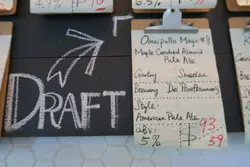 6.5%
DRAFT
Omnipollo Magic #8
Maple Candied Almond
Pale Ale
Country Sweden
Brewery De Proefbrouwerij
Style:
American Pale Ale
ABV: 93
5% 59